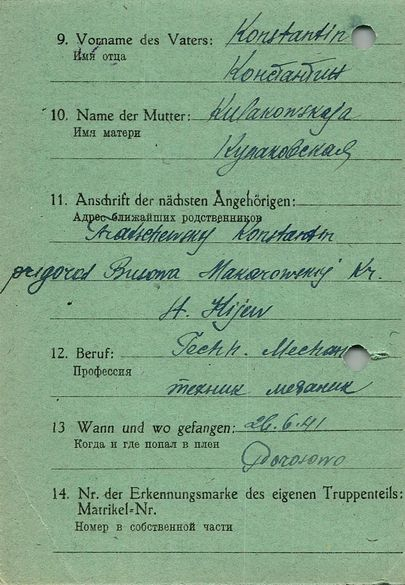 9. Vorname des Vaters: Konstantin
Имя отца
Константин
10. Name der Mutter: Kulakowskaja
Имя матери
Кулаковская
11. Anschrift der nächsten Angehörigen:
Адрес ближайших родственников
Konstantin
prigorod Busowa Makarowskij Kr.
St. Kijew
12. Beruf: Techn. Mechan
Профессия
техник механик
13 Wann und wo gefangen: 26.6.41
Когда и где попал в плен
14. Nr. der Erkennungsmarke des eigenen Truppenteils:
Matrikel-Nr.
Номер в собственной части